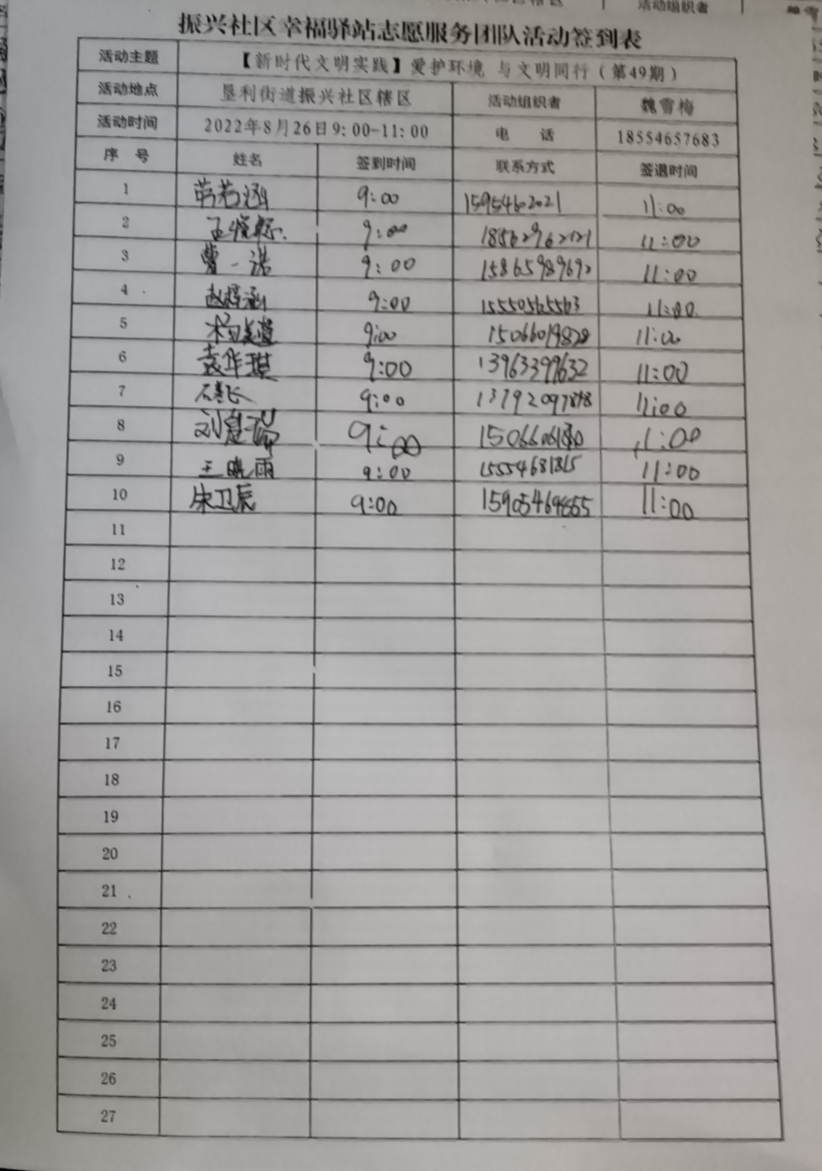 活动组织者
振兴社区幸福驿站志愿服务团队活动签到表
活动主题 【新时代文明实践】爱护环境 与文明同行（第49期）
活动地点 垦利街道振兴社区辖区 活动组织者 魏雪梅
活动时间 2022年8月26日9：00-11：00 电 话 18554657683
序 号 姓名 签到时间 联系方式 签退时间
1 9:00 15954602021 11:00
2 9:00 11:00
3 曹一诺 9:00 15865989692 11:00
4 9:00 15550565563 11:00
5 9:00 15066019828 11:00
6 袁华琪 9:00 13963399632 11:00
7 9:00 11:00
8 9:00 11:00
9 王晓雨 9:00 11:00
10 朱卫辰 9:00 11:00
11
12
13
14
15
16
17
18
19
20
21
22
23
24
25
26
27